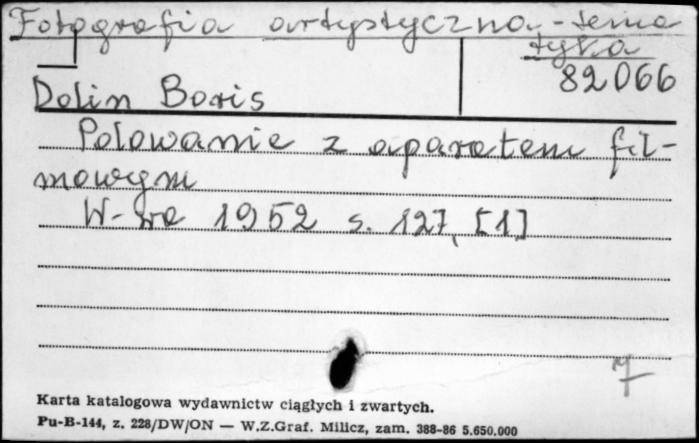 Fotografia artystyczna - tema
tyka
82066
Dolin Boris
Polowanie z aparatem fil-
mowym
W-wa 1952 s. 127, [1]
Karta katalogowa wydawnictw ciągłych i zwartych.
Pu-B-144, z. 228/DW/ON — W.Z.Graf. Milicz, zam. 388-86 5.650.000